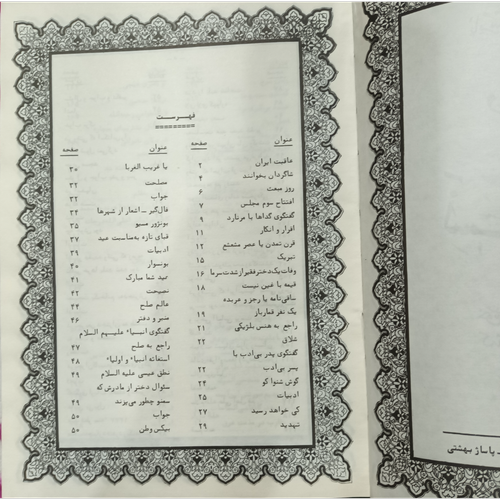 فهرست
عنوان صفحه
عاقبت ایران ۲
شاگردان بخوانند ۴
روز مبعث ۶
افتتاح سوم مجلس ۷
گفتگوی گداها با مرنارد ۹
اقرار و انکار ۱۱
قرن تمدن یا عصر متمتع ۱۲
تبریک ۱۵
وفات یکدختر فقیر از شدت سرما ۱۶
قیمه یا غین نیست ۱۸
ساقی‌نامه یا رجز و عربده
یک نفر قمارباز ۱۹
راجع به هنس بلژیکی ۲۱
شلاق ۲۲
گفتگوی پدر بی‌ادب با
پسر بی‌ادب ۲۲
گوش شنوا کو ۲۴
ادبیات ۲۵
کی خواهد رسید ۲۷
تهدید ۲۹
عنوان صفحه
یا غریب الغربا ۳۰
مصلحت ۳۲
جواب ۳۲
فال‌گیر ـ اشعار از شهرها ۳۴
بونژور مسیو ۳۵
قبای تازه به‌مناسبت عید ۳۷
ادبیات ۳۹
بونسوار ۴۰
عید شما مبارک ۴۱
نصیحت ۴۲
عالم صلح ۴۴
منبر و دفتر ۴۶
گفتگوی انبیاء علیهم السلام
راجع به صلح ۴۷
استغاثه انبیاء و اولیاء ۴۸
نطق عیسی علیه السلام ۴۹
سئوال دختر از مادرش که
سمنو چطور می‌پزند ۴۹
جواب ۵۰
بیکس وطن ۵۰
ـ پاساژ بهشتی